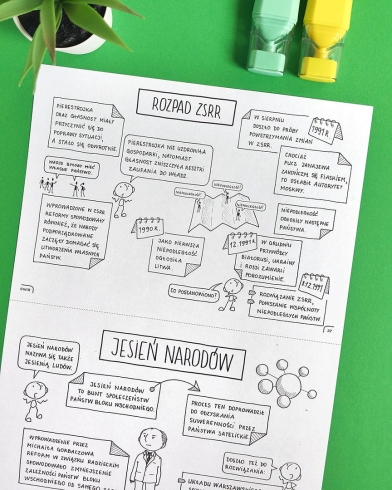 ROZPAD ZSRR
PIERESTROJKA
ORAZ GŁASNOST MIAŁY
PRZYCZYNIĆ SIĘ DO
POPRAWY SYTUACJI,
A STAŁO SIĘ ODWROTNIE.
PIERESTROJKA NIE UZDROWIŁA
GOSPODARKI, NATOMIAST
GŁASNOST ZNISZCZYŁA RESZTKI
ZAUFANIA DO WŁADZ.
W SIERPNIU
DOSZŁO DO PRÓBY
POWSTRZYMANIA ZMIAN
W ZSRR.
1991 R.
CHOCIAŻ
PUCZ JANAJEWA
ZAKOŃCZYŁ SIĘ FIASKIEM,
TO OSŁABIŁ AUTORYTET
MOSKWY.
MIEĆ
WŁASNE PAŃSTWO.
WPROWADZONE W ZSRR
REFORMY SPOWODOWAŁY
RÓWNIEŻ, ŻE NARODY
PODPORZĄDKOWANE
ZACZĘŁY DOMAGAĆ SIĘ
UTWORZENIA WŁASNYCH
PAŃSTW.
NIEPODLEGŁOŚĆ!
NIEPODLEGŁOŚĆ!
NIEPODLEGŁOŚĆ!
NIEPODLEGŁOŚĆ
OGŁOSIŁY NASTĘPNE
PAŃSTWA.
1990 R.
JAKO PIERWSZA
NIEPODLEGŁOŚĆ
OGŁOSIŁA
LITWA.
12.1991 R.
W GRUDNIU
PRZYWÓDCY
BIAŁORUSI, UKRAINY
I ROSJI ZAWARLI
POROZUMIENIE.
CO POSTANOWIONO?
8.12.1991
ROZWIĄZANIE ZSRR,
POWSTANIE WSPÓLNOTY
NIEPODLEGŁYCH PAŃSTW.
JESIEŃ NARODÓW
JESIEŃ NARODÓW
NAZYWA SIĘ TAKŻE
JESIENIĄ LUDÓW.
JESIEŃ NARODÓW
TO BUNT SPOŁECZEŃSTW
PAŃSTW BLOKU WSCHODNIEGO.
PROCES TEN DOPROWADZIŁ
DO ODZYSKANIA
SUWERENNOŚCI PRZEZ
PAŃSTWA SATELICKIE.
WPROWADZENIE PRZEZ
MICHAIŁA GORBACZOWA
REFORM W ZWIĄZKU RADZIECKIM
SPOWODOWAŁO ZMNIEJSZENIE
ZALEŻNOŚCI PAŃSTW BLOKU
WSCHODNIEGO OD SAMEGO
DOSZŁO TEŻ DO
ROZWIĄZANIA:
UKŁADU WARSZAWSKIEGO